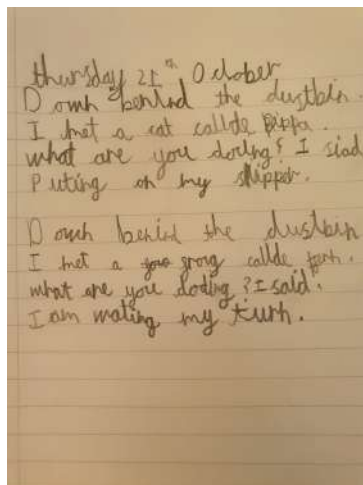 thursday 21th October
Down behind the dustbin.
I met a cat callde pippa.
what are you doring? I siad
Puting on my slipper.
Down behind the dustbin
I met a callde fern.
what are you doding? I said.
I am wating my turn.